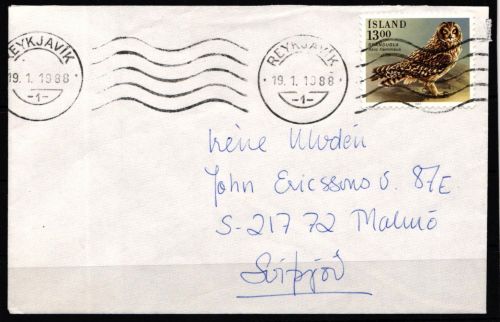 REYKJAVÍK
19.1.1988
-1-
REYKJAVÍK
19.1.1988
-1-
ÍSLAND
13.00
BRANDUGLA
Asio flammeus
Irène
John Ericssons v. 87E
S-217 72 Malmö
Svíþjóð